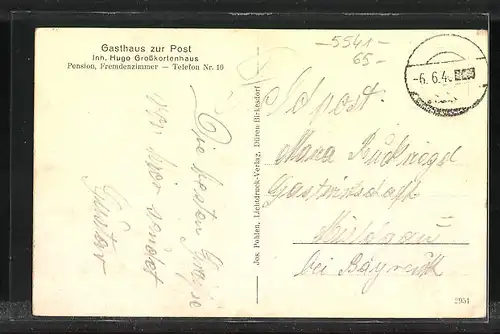 Gasthaus zur Post
Inh. Hugo Großkortenhaus
Pension, Fremdenzimmer — Telefon Nr. 19
Die besten Grüße
von hier sendet
Günter
Jos. Pohlen, Lichtdruck-Verlag, Düren-Birkesdorf
-5541-
65-
-6.6.4
Feldpost.
Maria
Gastwirtschaft
bei Bayreuth
2951